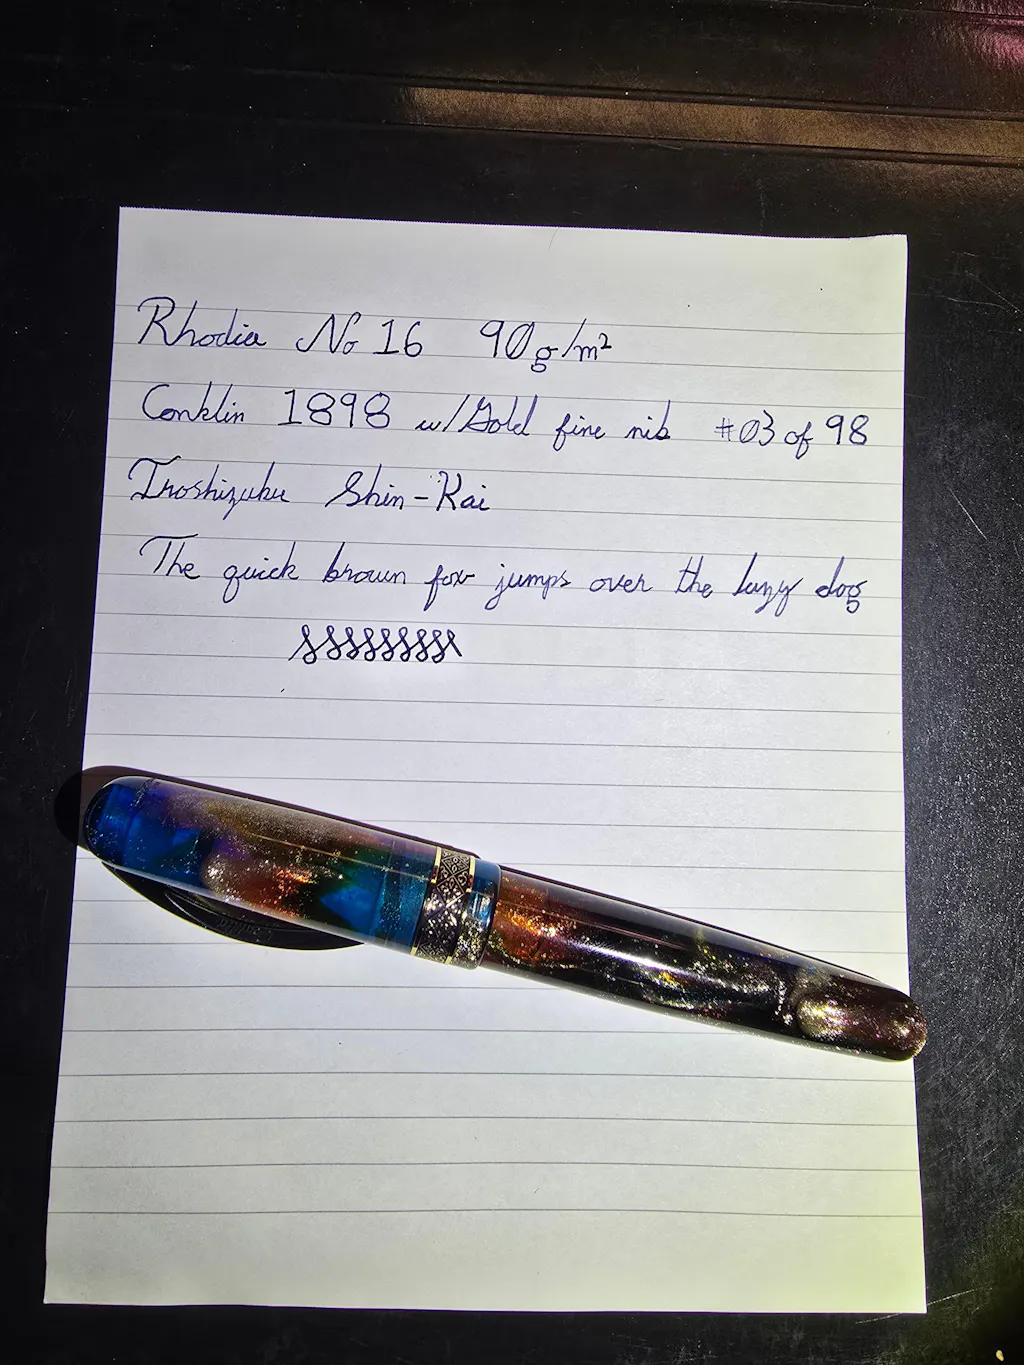 Rhodia No 16 90g/m²
Conklin 1898 w/Gold fine nib #03 of 98
Iroshizuku Shin-Kai
The quick brown fox jumps over the lazy dog